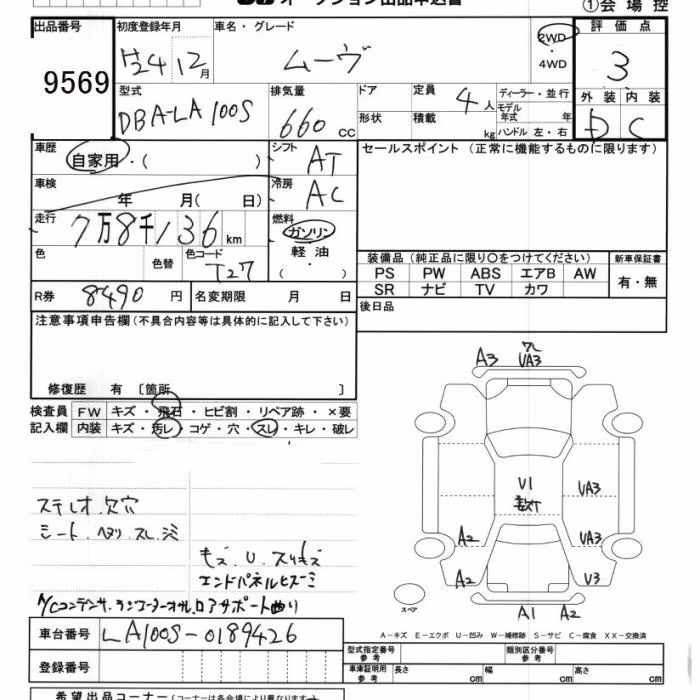 オークション出品申込書 ①会場控
出品番号 初度登録年月 車名・グレード 2WD 評価点
9569 H24 12月 ムーヴ ・4WD 3
型式 排気量 ドア 定員 4人 ディーラー・並行 外装 内装
DBA-LA100S 660cc 形状 積載 kg モデル年式 年 ハンドル 左・右 D C
車歴 自家用・( ) シフト AT セールスポイント (正常に機能するものに限ります)
車検 年 月( 日) 冷房 AC
走行 7万8千136km 燃料 ガソリン・軽油・( )
色 色替 色コード T27 装備品 (純正品に限り○をつけてください) 新車保証書
PS PW ABS エアB AW 有・無
SR ナビ TV カワ
R券 8490円 名変期限 月 日 後日品
注意事項申告欄 (不具合内容等は具体的に記入して下さい)
修復歴 有 [箇所 ]
検査員 FW キズ・飛石・ヒビ割・リペア跡・×要
記入欄 内装 キズ・汚レ・コゲ・穴・スレ・キレ・破レ
A3 UA3
U1
UA3
UA3
U3
A2
A2
A1 A2
ステレオ.欠穴
シート.ヘタリ.スレ.シミ
キズ.U.スリキズ
エンドパネルヒズミ
A/Cコンデンサ.ラジコーターオサ.ロアサポート曲り
スペア
A−キズ E−エクボ U−凹み W−補修跡 S−サビ C−腐食 XX−交換済
車台番号 LA100S-0189426
登録番号
型式指定番号 参考 類別区分番号 参考
車庫証明用 参考 長さ cm 幅 cm 高さ cm
希望出品コーナー (コーナーは各会場により異なります)